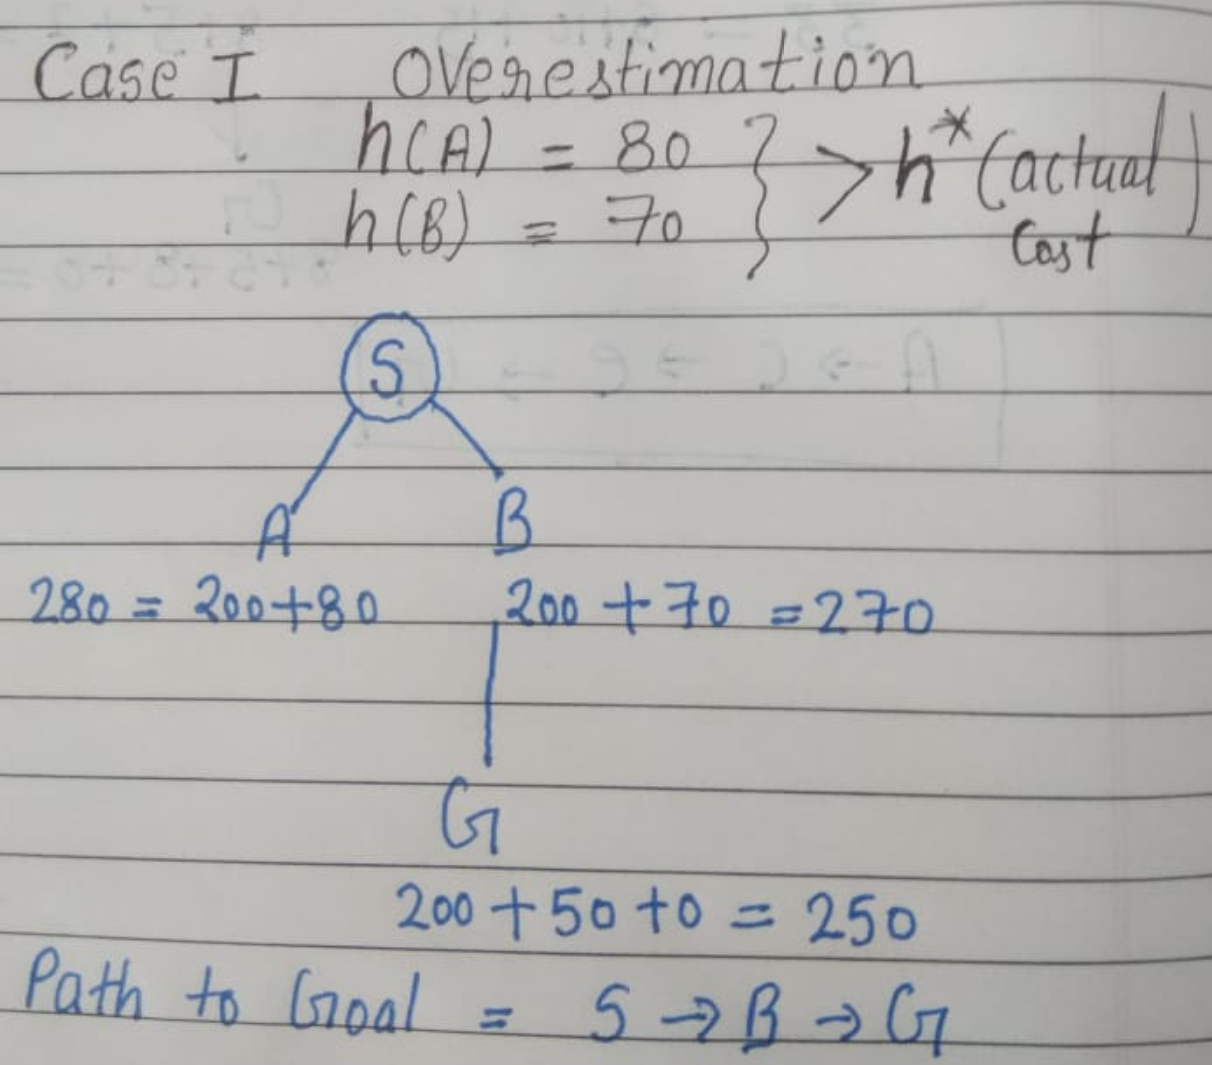 Case I Overestimation
h(A) = 80
h(B) = 70 } > h* (actual cost)
S
A B
280 = 200+80 200 + 70 = 270
G
200 + 50 + 0 = 250
Path to Goal = S → B → G